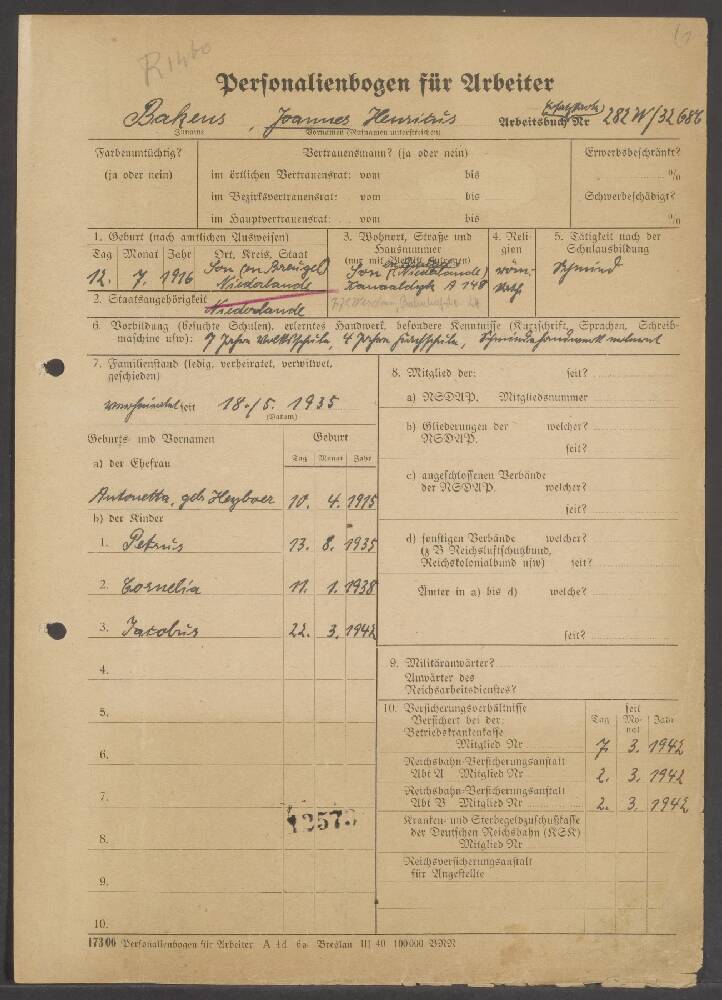 R 1460
6
Personalienbogen für Arbeiter
Bakens, Joannes Henricus
Zuname Vornamen (Rufnamen unterstreichen)
Arbeitsbuch Nr 282W/32 686
Farbenuntüchtig?
(ja oder nein)
Vertrauensmann? (ja oder nein)
im örtlichen Vertrauensrat: vom bis
im Bezirksvertrauensrat: vom bis
im Hauptvertrauensrat: vom bis
Erwerbsbeschränkt?
%
Schwerbeschädigt?
%
1. Geburt (nach amtlichen Ausweisen)
Tag Monat Jahr Ort, Kreis, Staat
12. 7. 1916 Son (en Breugel)
Niederlande
2. Staatsangehörigkeit Niederlande
3. Wohnort, Straße und
Hausnummer
Son (Niederlande)
Kanaaldijk A 148
4. Reli-
gion
röm.-
kath.
5. Tätigkeit nach der
Schulausbildung
Schmied
6. Vorbildung (besuchte Schulen), erlerntes Handwerk, besondere Kenntnisse (Kurzschrift, Sprachen, Schreib-
maschine usw): 7 Jahre Volksschule, 4 Jahre Fachschule, Schmiedehandwerk erlernt
7. Familienstand (ledig, verheiratet, verwitwet,
geschieden)
verheiratet seit 18./5. 1935
(Datum)
Geburts- und Vornamen Geburt
Tag Monat Jahr
a) der Ehefrau
Antonetta, geb. Heyboer 10. 4. 1915
b) der Kinder
1. Petrus 13. 8. 1935
2. Cornelia 11. 1. 1938
3. Jacobus 22. 3. 1942
4.
5.
6.
7.
8.
9.
10.
1257
8. Mitglied der: seit?
a) NSDAP. Mitgliedsnummer
b) Gliederungen der welcher?
NSDAP.
seit?
c) angeschlossenen Verbände
der NSDAP. welcher?
seit?
d) sonstigen Verbände welcher?
(z B Reichsluftschutzbund,
Reichskolonialbund usw) seit?
Ämter in a) bis d) welche?
seit?
9. Militäranwärter?
Anwärter des
Reichsarbeitsdienstes?
10. Versicherungsverhältnisse seit
Versichert bei der: Tag Mo-nat Jahr
Betriebskrankenkasse
Mitglied Nr 7. 3. 1942
Reichsbahn-Versicherungsanstalt
Abt A Mitglied Nr 2. 3. 1942
Reichsbahn-Versicherungsanstalt
Abt B Mitglied Nr 2. 3. 1942
Kranken- und Sterbegeldzuschußkasse
der Deutschen Reichsbahn (KSK)
Mitglied Nr
Reichsversicherungsanstalt
für Angestellte
173 06 Personalienbogen für Arbeiter A 4d 6a Breslau III 40 100 000 BNR